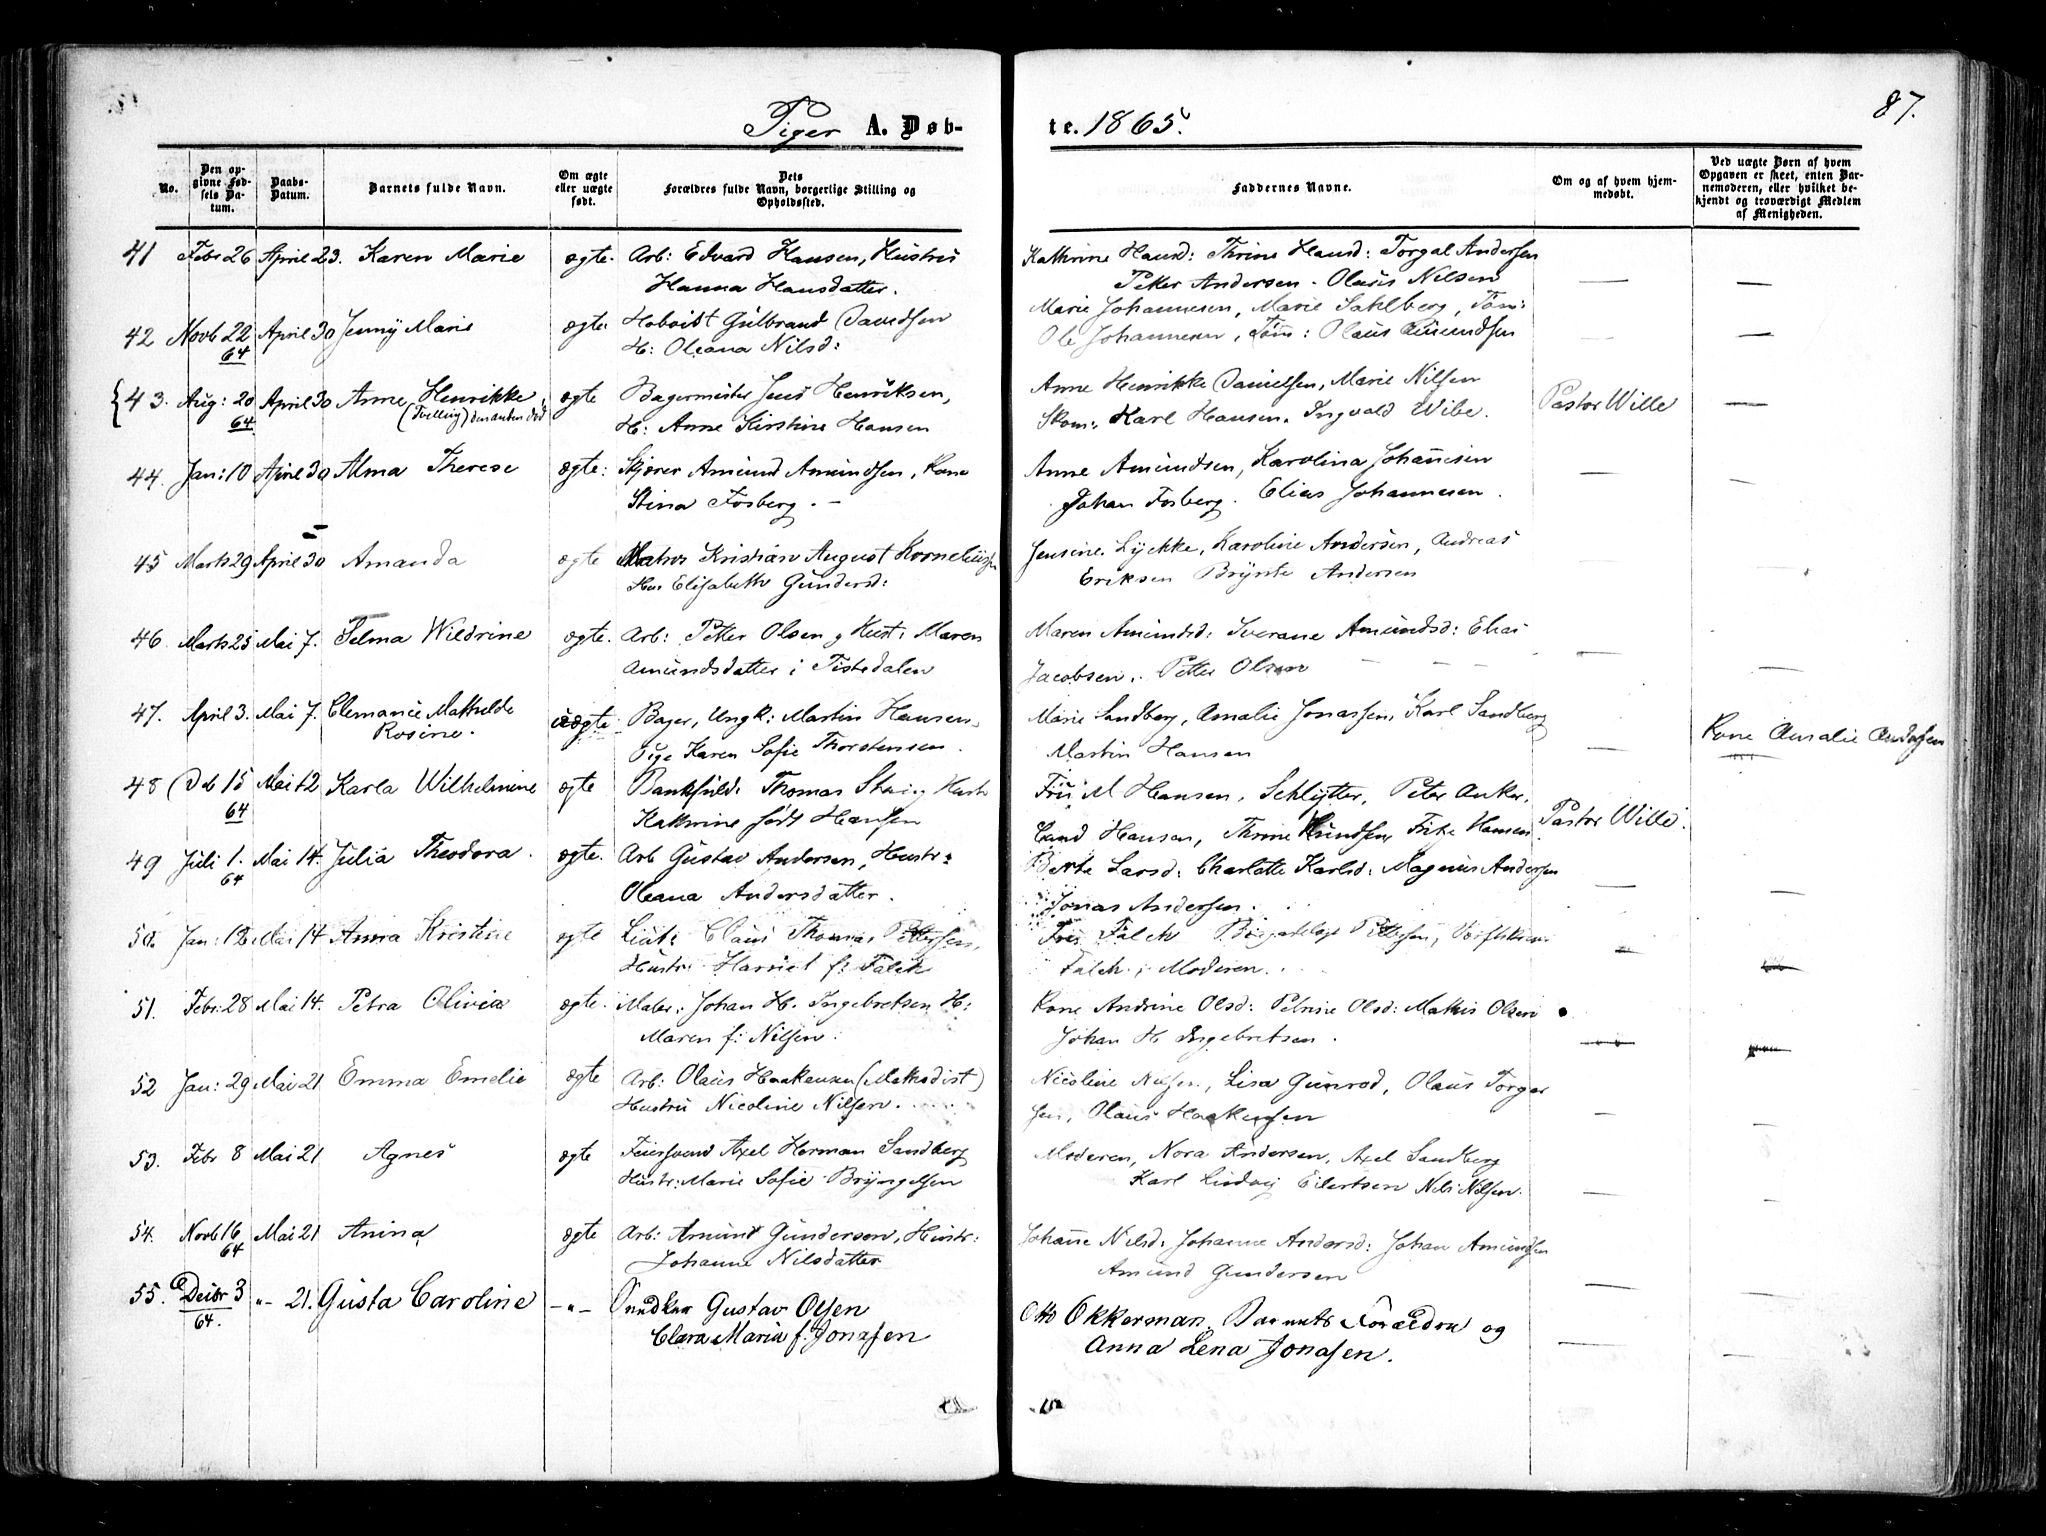 87.
Piger A. Døb-
te. 1865.
No.
Den op-
givne Fød-
sels Da-
tum.
Daabs-
Datum.
Barnets fulde Navn.
Om ægte
eller uægte
født.
Dets
Forældres fulde Navn, borgerlige Stilling og
Opholdssted.
Faddernes Navne.
Om og af hvem hjem-
medøbt.
Ved uægte Børn af hvem
Opgaven er skeet, enten Bar-
nemoderen, eller hvilket be-
kjendt og troværdigt Medlem
af Menigheden.
41 Febr 26 April 23. Karen Marie ægte. Arb: Edvard Hansen, Hustru
Hanna Hansdatter.
Kathrine Hansd: Thrine Hansd: Torgal Andersen
Petter Andersen. Olaus Nilsen
42 Novb 22 April 30 Jenny Marie ægte. Gulbrand Davidsen
64
H: Oleana Nilsd:
Marie Johannesen, Marie Sahlberg, Tøm:
Ole Johannesen, Tøm: Olaus Amundsen
43. Aug: 20 April 30 Anne Henrikke, ægte Bagermester Jens Henriksen,
64
(Tvilling) den anden død
H: Anne Kirstine Hansen
Anne Henrikke Danielsen, Marie Nilsen
Skom: Karl Hansen. Ingvald Wibe.
Pastor Wille
44. Jan: 10 April 30 Alma Therese ægte: Skjærer Amund Amundsen, Kone
Stina Fosberg. -
Anne Amundsen, Karolina Johannesen
Johan Fosberg. Elias Johannesen.
45 Marts 29 April 30 Amanda ægte Matros Kristian August Korneliussen
Hus Elisabeth Gundersd:
Jensine Lykke, Karoline Andersen, Andreas
Eriksen Brynte Andersen
46 Marts 25 Mai 7. Selma Wildrine ægte. Arb: Petter Olsen, Hust: Maren
Amundsdatter i Tistedalen
Maren Amundsd: Iverane Amundsd: Elias
Jacobsen. Petter Olsen
47. April 3. Mai 7. Clemance Mathilde uægte. Bager, Ungk: Martin Hansen,
Rosine.
Pige Karen Sofie Thorstensen.
Marie Sandberg, Amalie Jonassen, Karl Sandberg
Martin Hansen
Kone Amalie Andersen
48 Dcb 15 Mai 12 Karla Wilhelmine ægte Bankfuld: Thomas Stang Hustr
64
Kathrine født Hansen
Fru M Hansen, Schlytter, Peter Anker,
Cand Hansen, Thrine Knudsen Fritz Hansen
Pastor Wille.
49 Juli 1. Mai 14. Julia Theodora. ægte. Arb Gustav Andersen, Hustr:
64
Oleana Andersdatter.
Berte Larsd: Charlotte Karlsd: Magnus Andersen
Jonas Andersen.
50. Jan: 12 Mai 14 Anna Kristine ægte Lieut: Claus Thomas Pettersen,
Hustr: Harriet f: Falch
Fru Falch Pettersen,
Falch. Moderen.
51. Febr: 28 Mai 14. Petra Olivia ægte. Maler. Johan H. Ingebretsen H:
Maren f: Nilsen.
Kone Andrine Olsd: Petrine Olsd: Mathis Olsen
Johan H. Ingebretsen.
52 Jan: 29 Mai 21 Emma Emelie ægte Arb: Olaus Haakensen (Methodist)
Hustru Nicoline Nilsen.
Nicoline Nilsen, Lisa Gunrod, Olaus Torger
sen, Olaus Haakensen
53. Febr 8 Mai 21 Agnes ægte Feiersvend Axel Herman Sandberg
Hustr: Marie Sofie Bryngelsen
Moderen, Nora Andersen, Axel Sandberg
Karl Ludvig Eilertsen Nils Nilsen.
54. Novb 16 Mai 21 Anina ægte Arb: Amund Gundersen, Hustr:
64
Johanne Nilsdatter
Johanne Nilsd: Johanne Andersd: Johan Amundsen
Amund Gundersen
55. Decbr 3 "- 21. Gusta Caroline -"- Snedker Gustav Olsen
64.
Clara Maria f. Jonasen
Otto Okkerman. Barnets Forældre og
Anna Lena Jonasen.